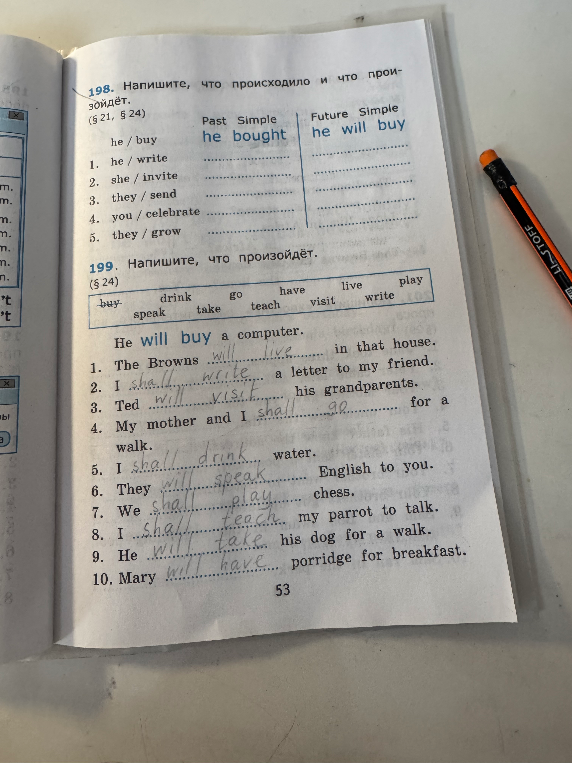 198. Напишите, что происходило и что прои-
зойдёт.
(§ 21, § 24)
Past Simple Future Simple
he / buy he bought he will buy
1. he / write
2. she / invite
3. they / send
4. you / celebrate
5. they / grow
199. Напишите, что произойдёт.
(§ 24)
buy drink go have live play
speak take teach visit write
He will buy a computer.
1. The Browns will live in that house.
2. I shall write a letter to my friend.
3. Ted will visit his grandparents.
4. My mother and I shall go for a
walk.
5. I shall drink water.
6. They will speak English to you.
7. We shall play chess.
8. I shall teach my parrot to talk.
9. He will take his dog for a walk.
10. Mary will have porridge for breakfast.
53
m.
m.
m.
m.
m.
n.
't
't